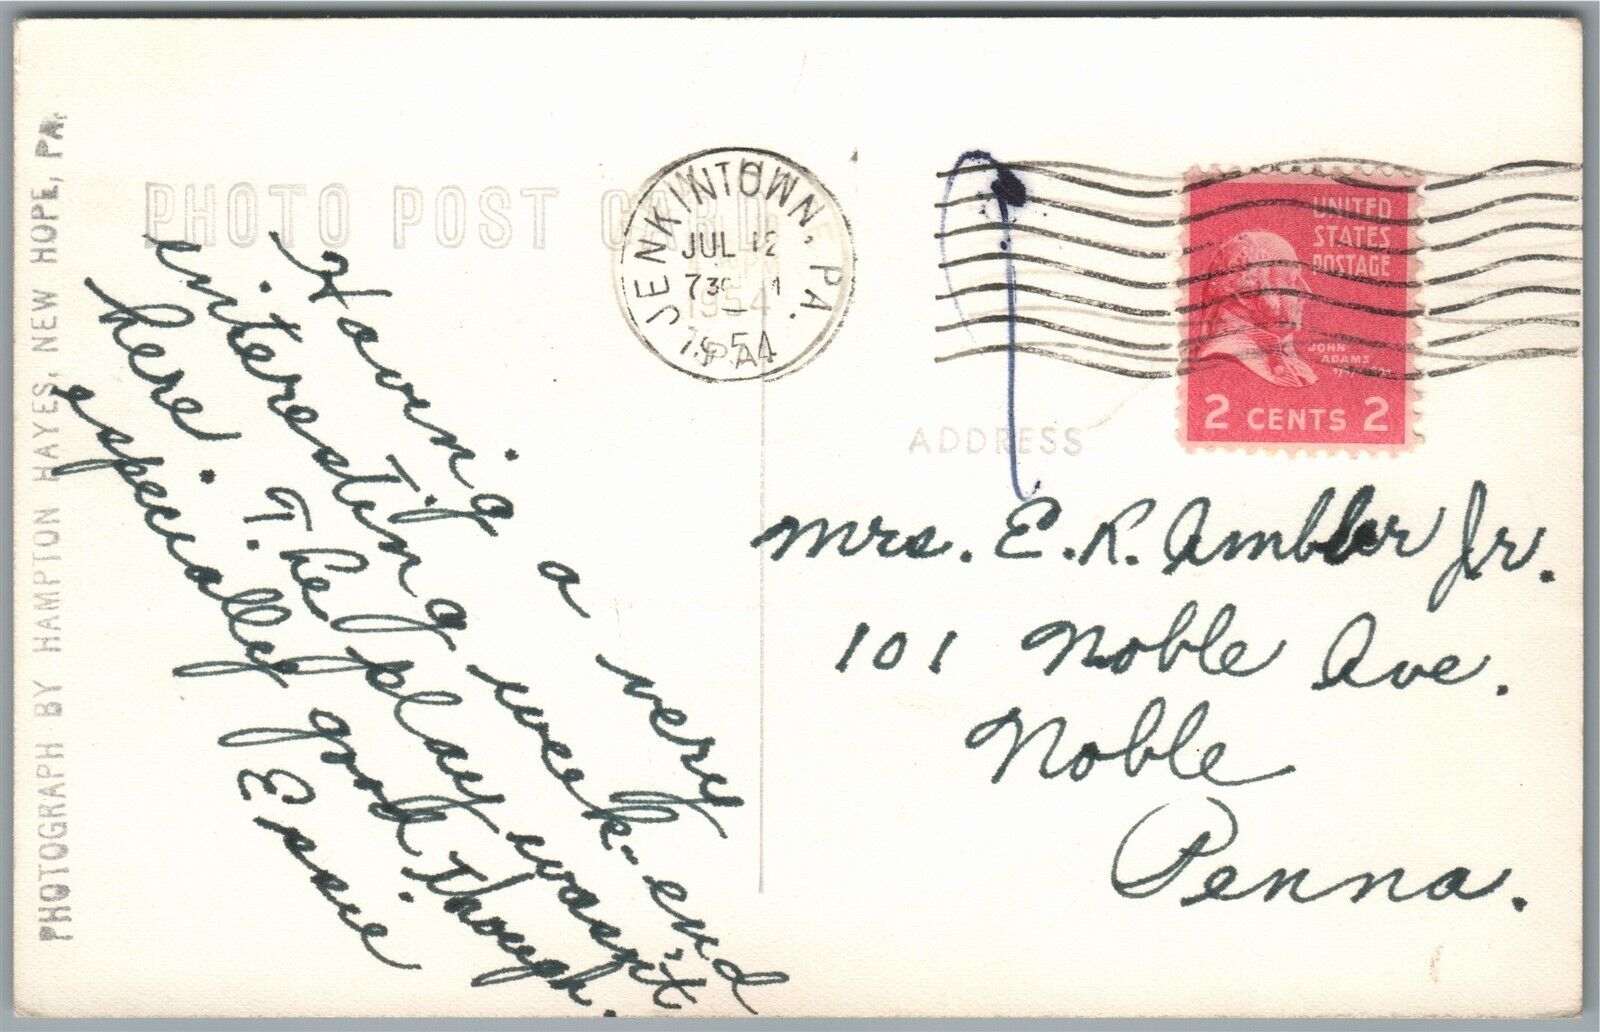 PHOTOGRAPH BY HAMPTON HAYES, NEW HOPE, PA.
PHOTO POST CARD
Having a very
interesting week-end
here. The play wasn't
especially good though.
Essie
JENKINTOWN, PA.
JUL 12
730
1954
1954
PA
UNITED
STATES
POSTAGE
JOHN
ADAMS
2 CENTS 2
ADDRESS
Mrs. E. R. Ambler Jr.
101 Noble Ave.
Noble
Penna.